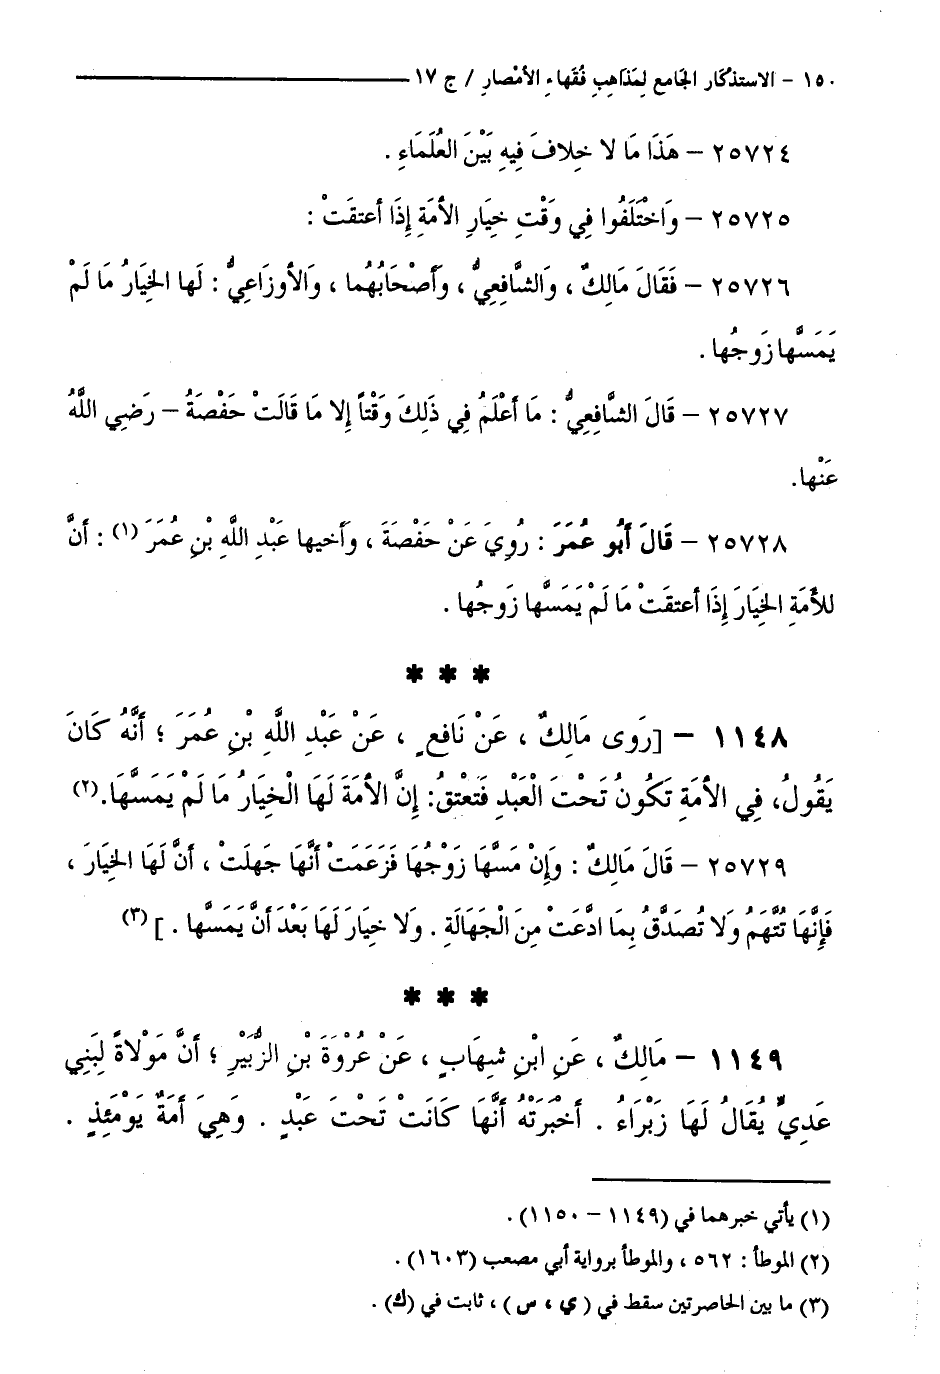 ١٥٠ – الاستذكار الجَامع لِمَذاهِبِ فُقَهاءِ الأمْصارِ / ج ١٧
٢٥٧٢٤ – هَذَا مَا لا خِلافَ فِيهِ بَيْنَ العُلَمَاءِ .
٢٥٧٢٥ – وَاخْتَلَفُوا فِي وَقْتِ خِيَارِ الأمَةِ إِذَا أعتقَتْ :
٢٥٧٢٦ – فَقَالَ مَالِكٌ ، وَالشَّافِعِيُّ ، وَأصْحَابُهُما ، وَالأوزَاعِيُّ : لَها الخِيَارُ مَا لَمْ
يَمَسَّها زَوجُها .
٢٥٧٢٧ – قَالَ الشَّافِعِيُّ : مَا أعْلَمُ فِي ذَلِكَ وَقْتاً إِلا مَا قَالَتْ حَفْصَةُ – رَضِي اللَّهُ
عَنْها.
٢٥٧٢٨ – قَالَ أَبُو عُمَرَ : رُوِيَ عَنْ حَفْصَةَ ، وَأخيها عَبْدِ اللَّهِ بْنِ عُمَرَ (١) : أنَّ
للأَمَةِ الخِيَارَ إِذَا أعتقَتْ مَا لَمْ يَمَسَّها زَوجُها .
* * *
١١٤٨ – [رَوى مَالِكٌ ، عَنْ نَافعٍ ، عَنْ عَبْدِ اللَّهِ بْنِ عُمَرَ ؛ أنَّهُ كَانَ
يَقُولُ، فِي الأمَةِ تَكُونُ تَحْتَ الْعَبْدِ فَتَعْتِقُ: إِنَّ الأمَةَ لَهَا الْخِيَارُ مَا لَمْ يَمَسَّهَا.(٢)
٢٥٧٢٩ – قَالَ مَالِكٌ : وَإِنْ مَسَّهَا زَوْجُهَا فَزَعَمَتْ أنَّهَا جَهلَتْ ، أنَّ لَهَا الخِيَارَ ،
فَإِنَّهَا تُتَّهَمُ وَلا تُصَدَّقُ بِمَا ادَّعَتْ مِنَ الْجَهَالَةِ . وَلا خِيَارَ لَهَا بَعْدَ أنَّ يَمَسَّها . ] (٣)
* * *
١١٤٩ – مَالِكٌ ، عَنِ ابْنِ شِهَابٍ ، عَنْ عُرْوَةَ بْنِ الزُّبَيْرِ ؛ أنَّ مَوْلاةً لِبَنِي
عَدِيٍّ يُقَالُ لَهَا زَبْرَاءُ . أخْبَرَتْهُ أنَّهَا كَانَتْ تَحْتَ عَبْدٍ . وَهِيَ أمَةٌ يَوْمَئِذٍ .
(١) يأتي خبرهما في (١١٤٩ – ١١٥٠) .
(٢) الموطأ : ٥٦٢ ، والموطأ برواية أبي مصعب (١٦٠٣) .
(٣) ما بين الحاصرتين سقط في ( ي ، س ) ، ثابت في (ك) .